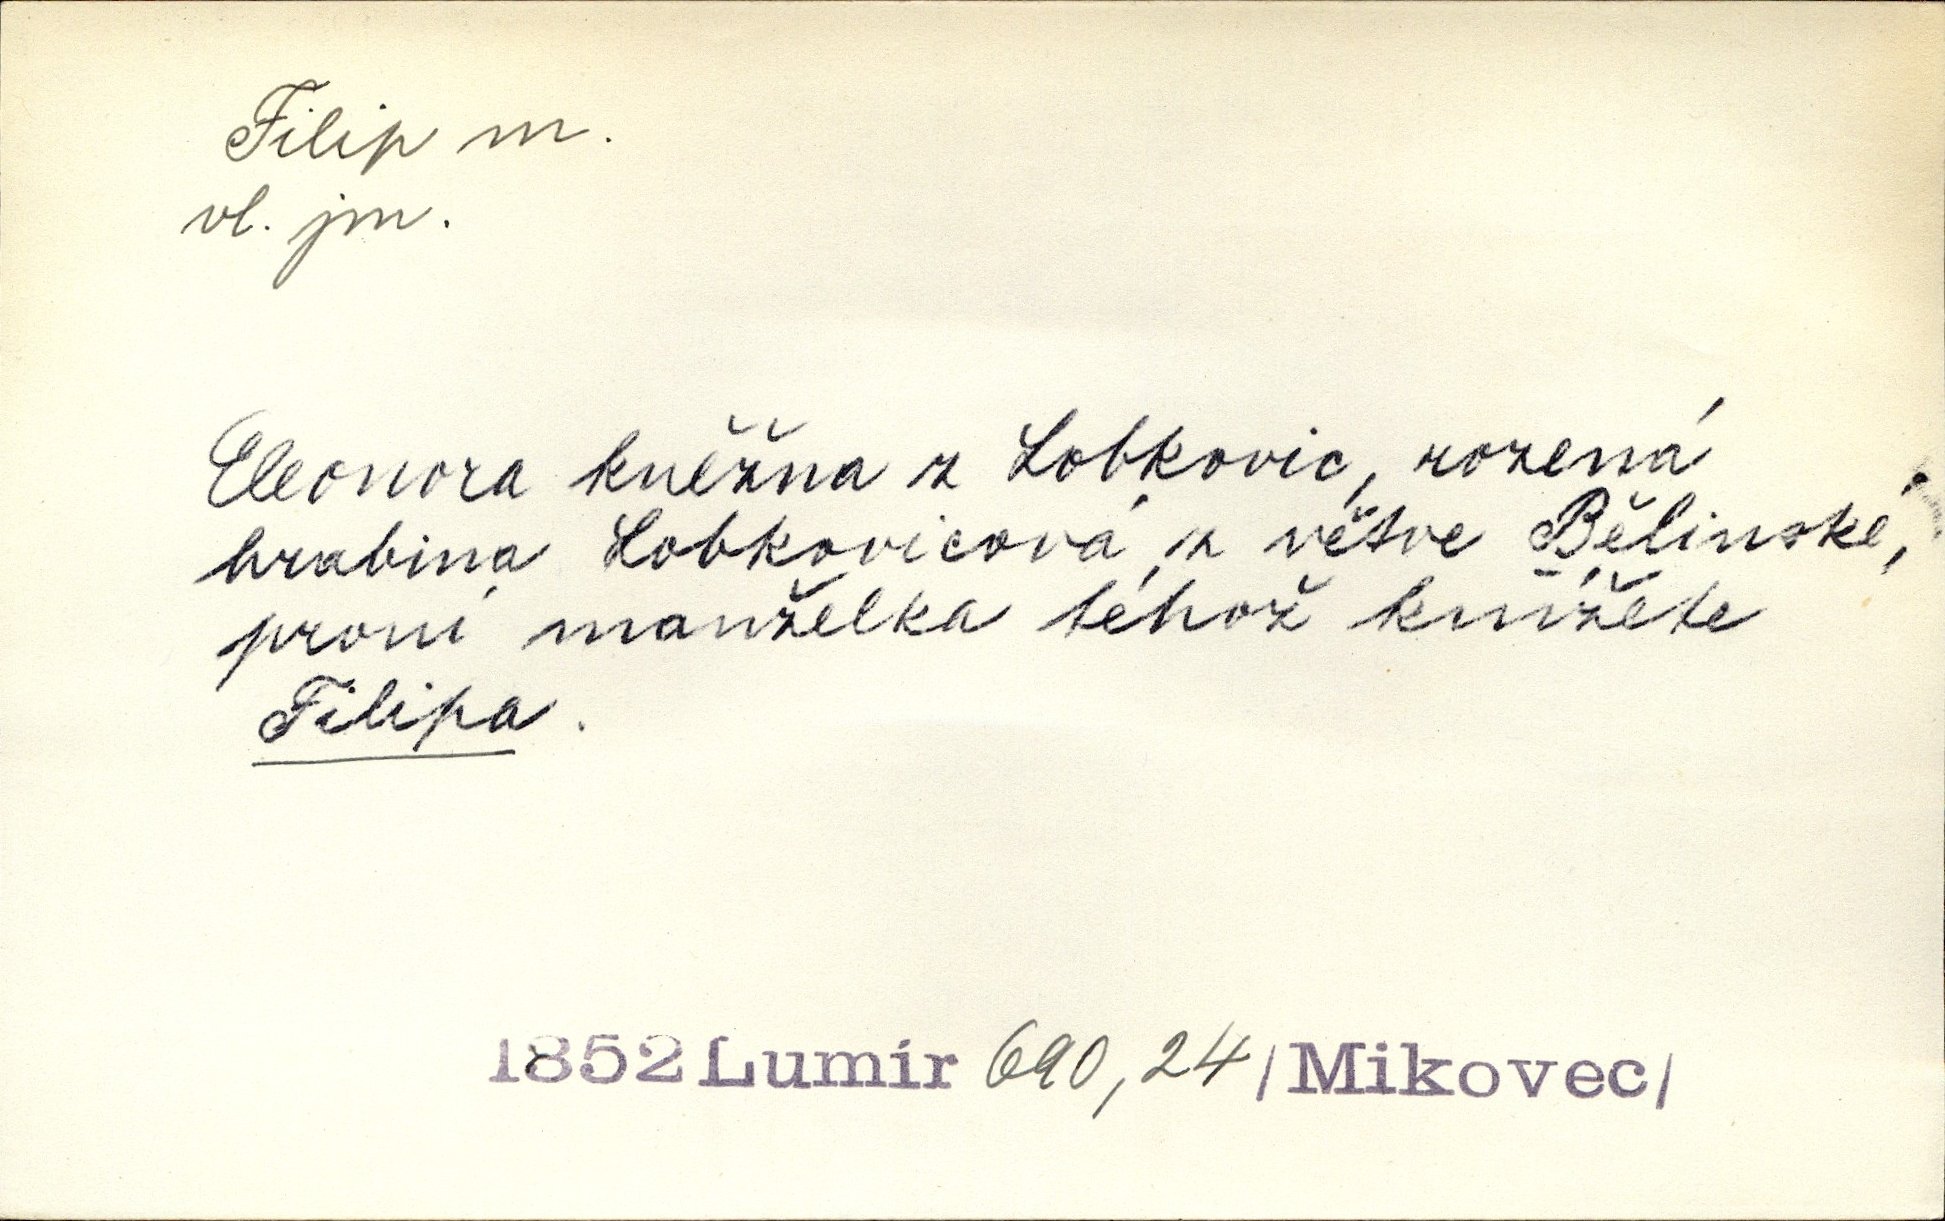 Filip m.
vl. jm.
Eleonora kněžna z Lobkovic, rozená
hrabina Lobkovicová z větve Bělinské,
první manželka téhož knížete
Filipa.
1852 Lumír 690,24 /Mikovec/